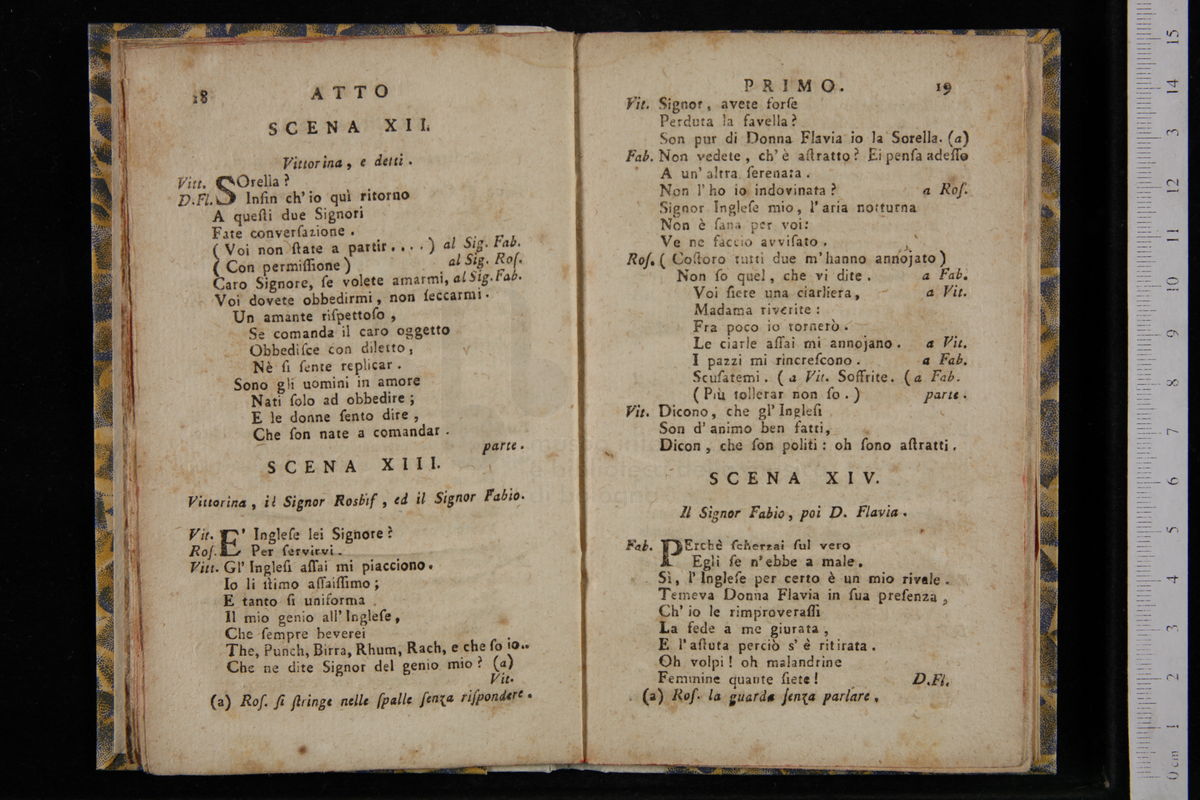 18 ATTO
SCENA XII.
Vittorina, e detti.
Vitt. SOrella?
D.Fl. Infin ch' io quì ritorno
A queſti due Signori
Fate converſazione.
(Voi non ſtate a partir....) al Sig. Fab.
(Con permiſſione) al Sig. Roſ.
Caro Signore, ſe volete amarmi, al Sig. Fab.
Voi dovete obbedirmi, non ſeccarmi.
Un amante riſpettoſo,
Se comanda il caro oggetto
Obbediſce con diletto,
Nè ſi ſente replicar.
Sono gli uomini in amore
Nati ſolo ad obbedire;
E le donne ſento dire,
Che ſon nate a comandar.
parte.
SCENA XIII.
Vittorina, il Signor Rosbif, ed il Signor Fabio.
Vit. E' Ingleſe lei Signore?
Roſ. Per ſervirvi.
Vitt. Gl' Ingleſi aſſai mi piacciono.
Io li ſtimo aſſaiſſimo;
E tanto ſi uniforma
Il mio genio all' Ingleſe,
Che ſempre beverei
The, Punch, Birra, Rhum, Rach, e che ſo io..
Che ne dite Signor del genio mio? (a)
Vit.
(a) Roſ. ſi ſtringe nelle ſpalle ſenza riſpondere.
PRIMO. 19
Vit. Signor, avete forſe
Perduta la favella?
Son pur di Donna Flavia io la Sorella. (a)
Fab. Non vedete, ch' è aſtratto? Ei penſa adeſſo
A un' altra ſerenata.
Non l' ho io indovinata? a Roſ.
Signor Ingleſe mio, l' aria notturna
Non è ſana per voi:
Ve ne faccio avviſato.
Roſ. (Coſtoro tutti due m' hanno annojato)
Non ſo quel, che vi dite. a Fab.
Voi ſiete una ciarliera, a Vit.
Madama riverite:
Fra poco io tornerò.
Le ciarle aſſai mi annojano. a Vit.
I pazzi mi rincreſcono. a Fab.
Scuſatemi. (a Vit. Soffrite. (a Fab.
(Più tollerar non ſo.) parte.
Vit. Dicono, che gl' Ingleſi
Son d' animo ben fatti,
Dicon, che ſon politi: oh ſono aſtratti.
SCENA XIV.
Il Signor Fabio, poi D. Flavia.
Fab. PErchè ſcherzai ſul vero
Egli ſe n' ebbe a male.
Sì, l' Ingleſe per certo è un mio rivale.
Temeva Donna Flavia in ſua preſenza,
Ch' io le rimproveraſſi
La fede a me giurata,
E l' aſtuta perciò s' è ritirata.
Oh volpi! oh malandrine
Femmine quante ſiete! D.Fl.
(a) Roſ. la guarda ſenza parlare.
0 cm 1 2 3 4 5 6 7 8 9 10 11 12 13 14 15